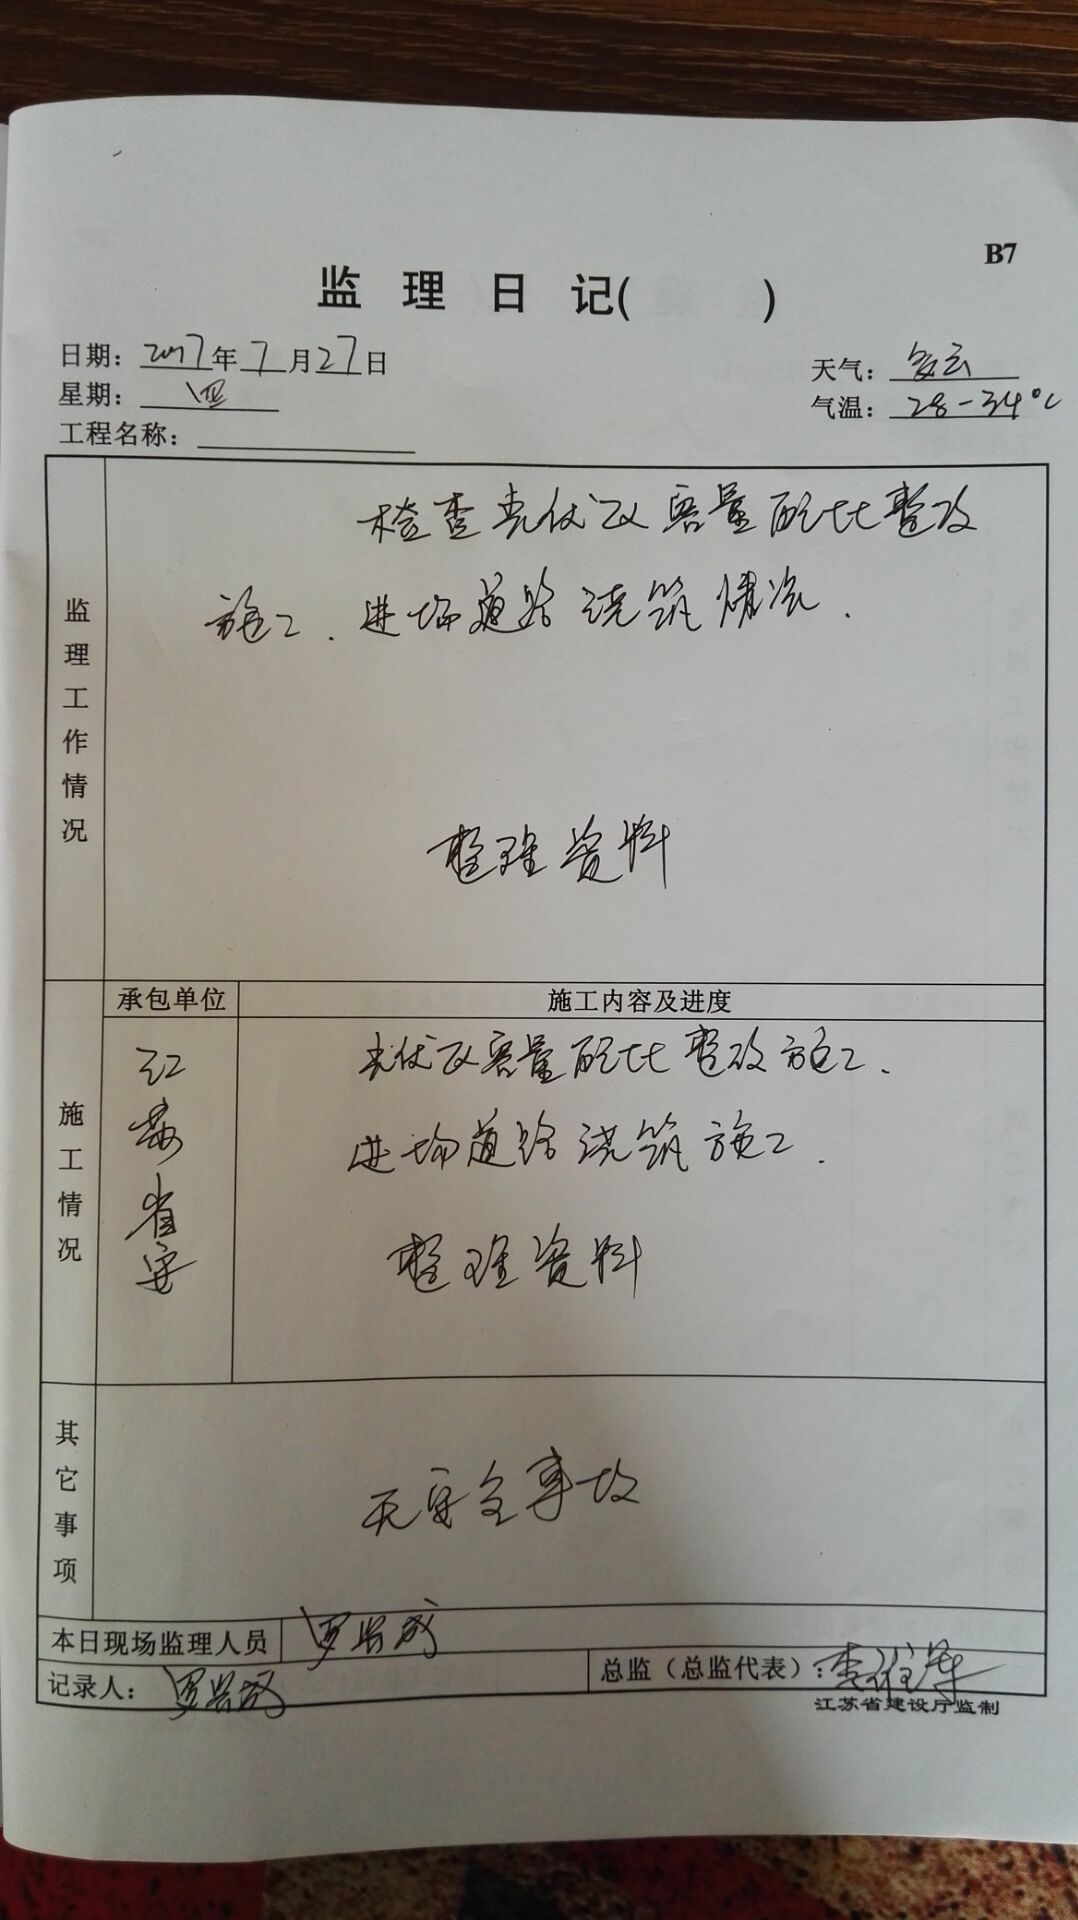 B7
监 理 日 记( )
日期：2017年7月27日
天气：多云
星期：四
气温：28-34℃
工程名称：
监理工作情况
检查光伏区容量配比整改
施工．进场道路浇筑情况．
整理资料
承包单位
施工内容及进度
施工情况
江苏省安
光伏区容量配比整改施工．
进场道路浇筑施工．
整理资料
其它事项
无安全事故
本日现场监理人员
记录人：
总监（总监代表）：
江苏省建设厅监制